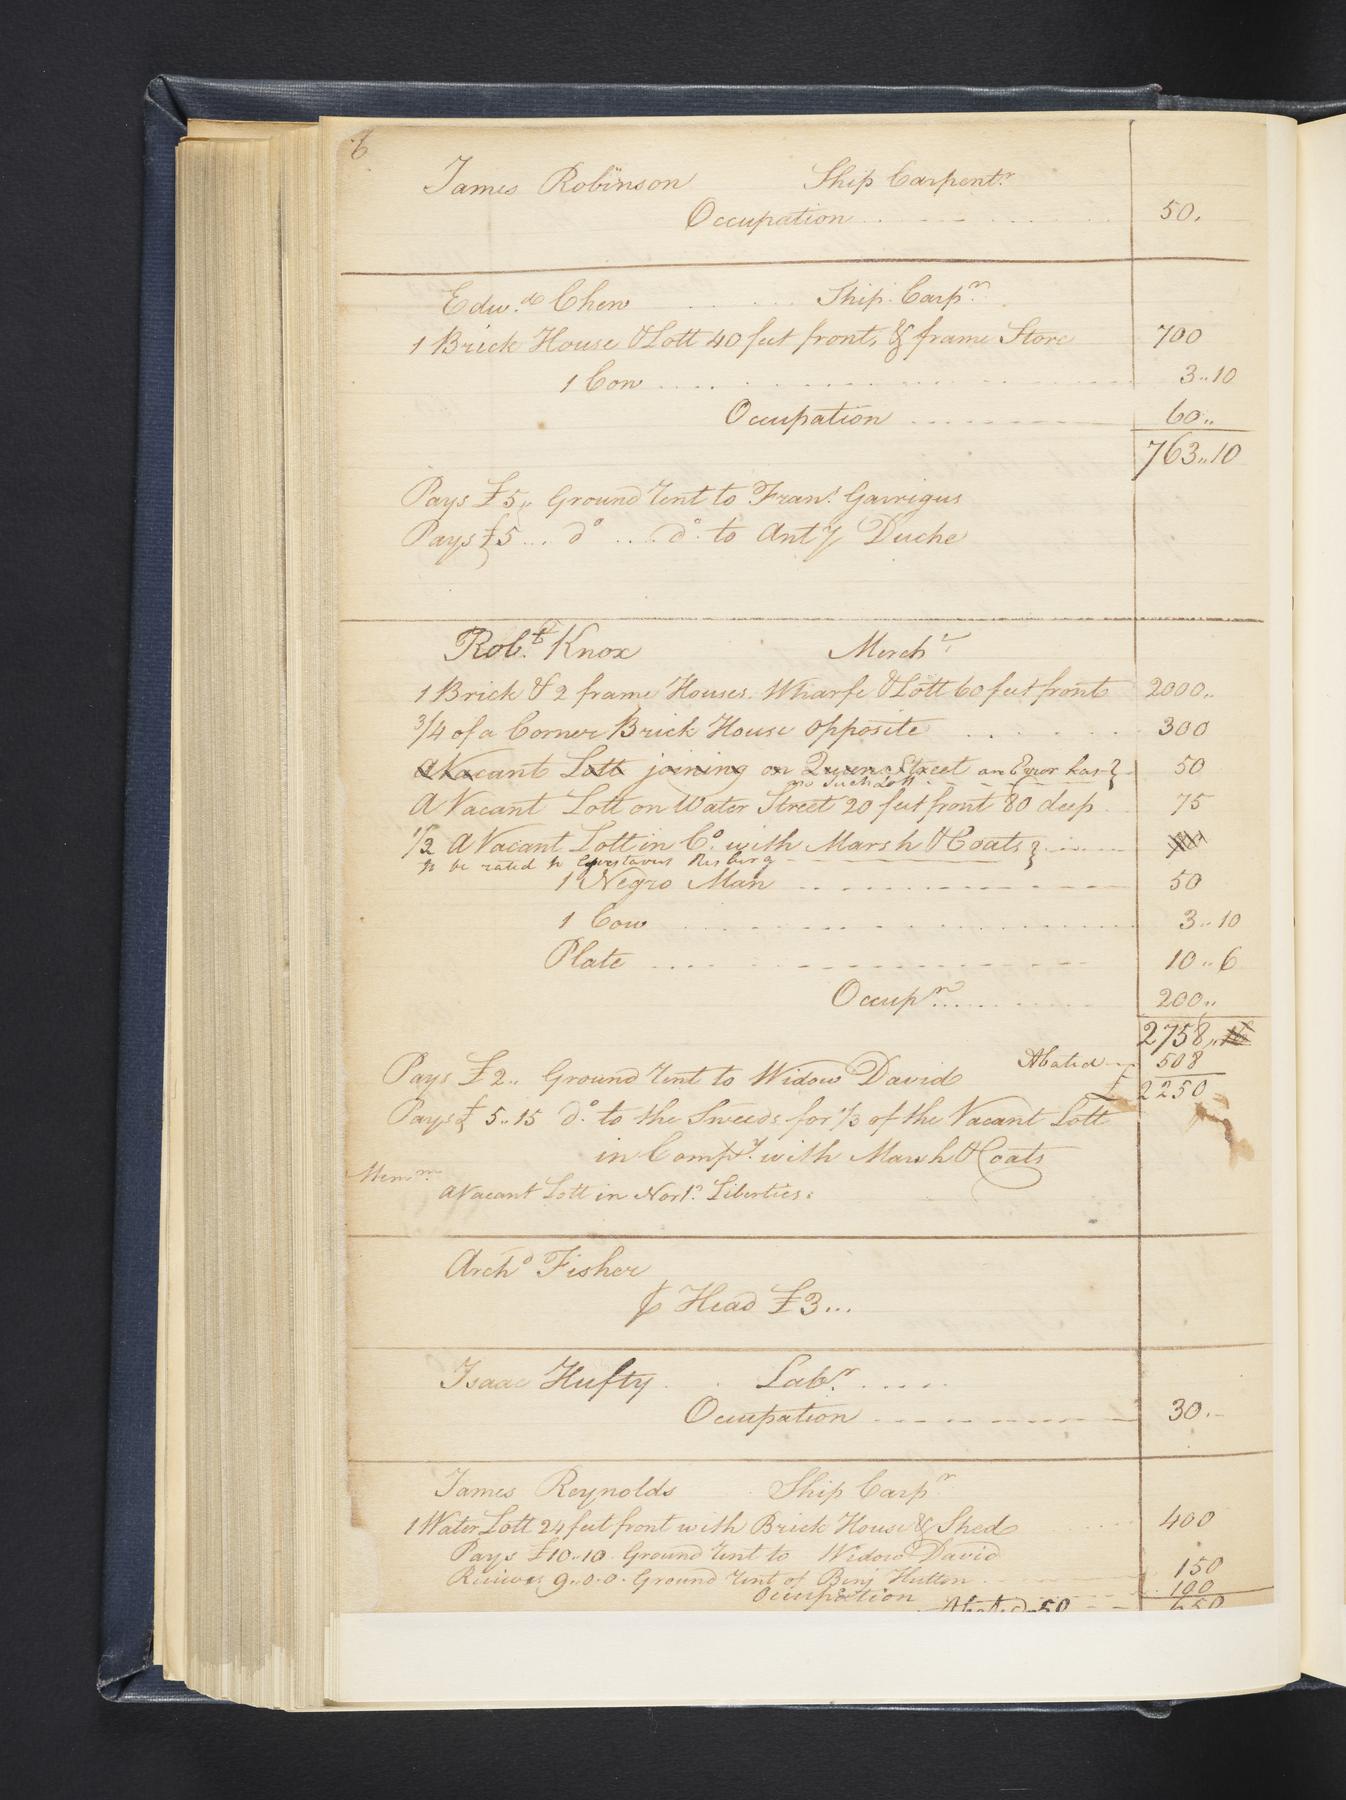 6
James Robinson Ship Carpentr.
Occupation 50.
Edwd. Chew Ship Carpr.
1 Brick House & Lott 40 feet front, & frame Store 700
1 Cow 3..10
Occupation 60..
763..10
Pays £5,, Ground Rent to Frans. Garrigus
Pays £5 ... do ... do. to Anty Duche
Robt. Knox Merchr.
1 Brick & 2 frame Houses Wharfe & Lott 60 feet front 2000..
3/4 of a Corner Brick House opposite 300
A Vacant Lott joining on Queen Street an Error has 50
no such Lott
A Vacant Lott on Water Street 20 feet front 80 deep 75
1/2 A Vacant Lott in Co. with Marsh & Coats
to be rated to Gustavus Risberg
1 Negro Man 50
1 Cow 3..10
Plate 10..6
Occupn. 200,,
2758,, 16
Abated 508
Pays £2.. Ground Rent to Widow David £ 2250
Pays £ 5..15 do. to the Sweeds for 1/3 of the Vacant Lott
in Compy. with Marsh & Coats
Memm.
A Vacant Lott in Norn. Liberties:
Archd. Fisher
⅌ Head £3...
Isaac Hufty Labr.
Occupation 30.-
James Reynolds Ship Carpr.
1 Water Lott 24 feet front with Brick House & Shed 400
Pays £10..10 Ground Rent to Widow David
Recieves 9..0.0. Ground Rent of Benj Hutton 150
Occupation 100
Abated 50 650